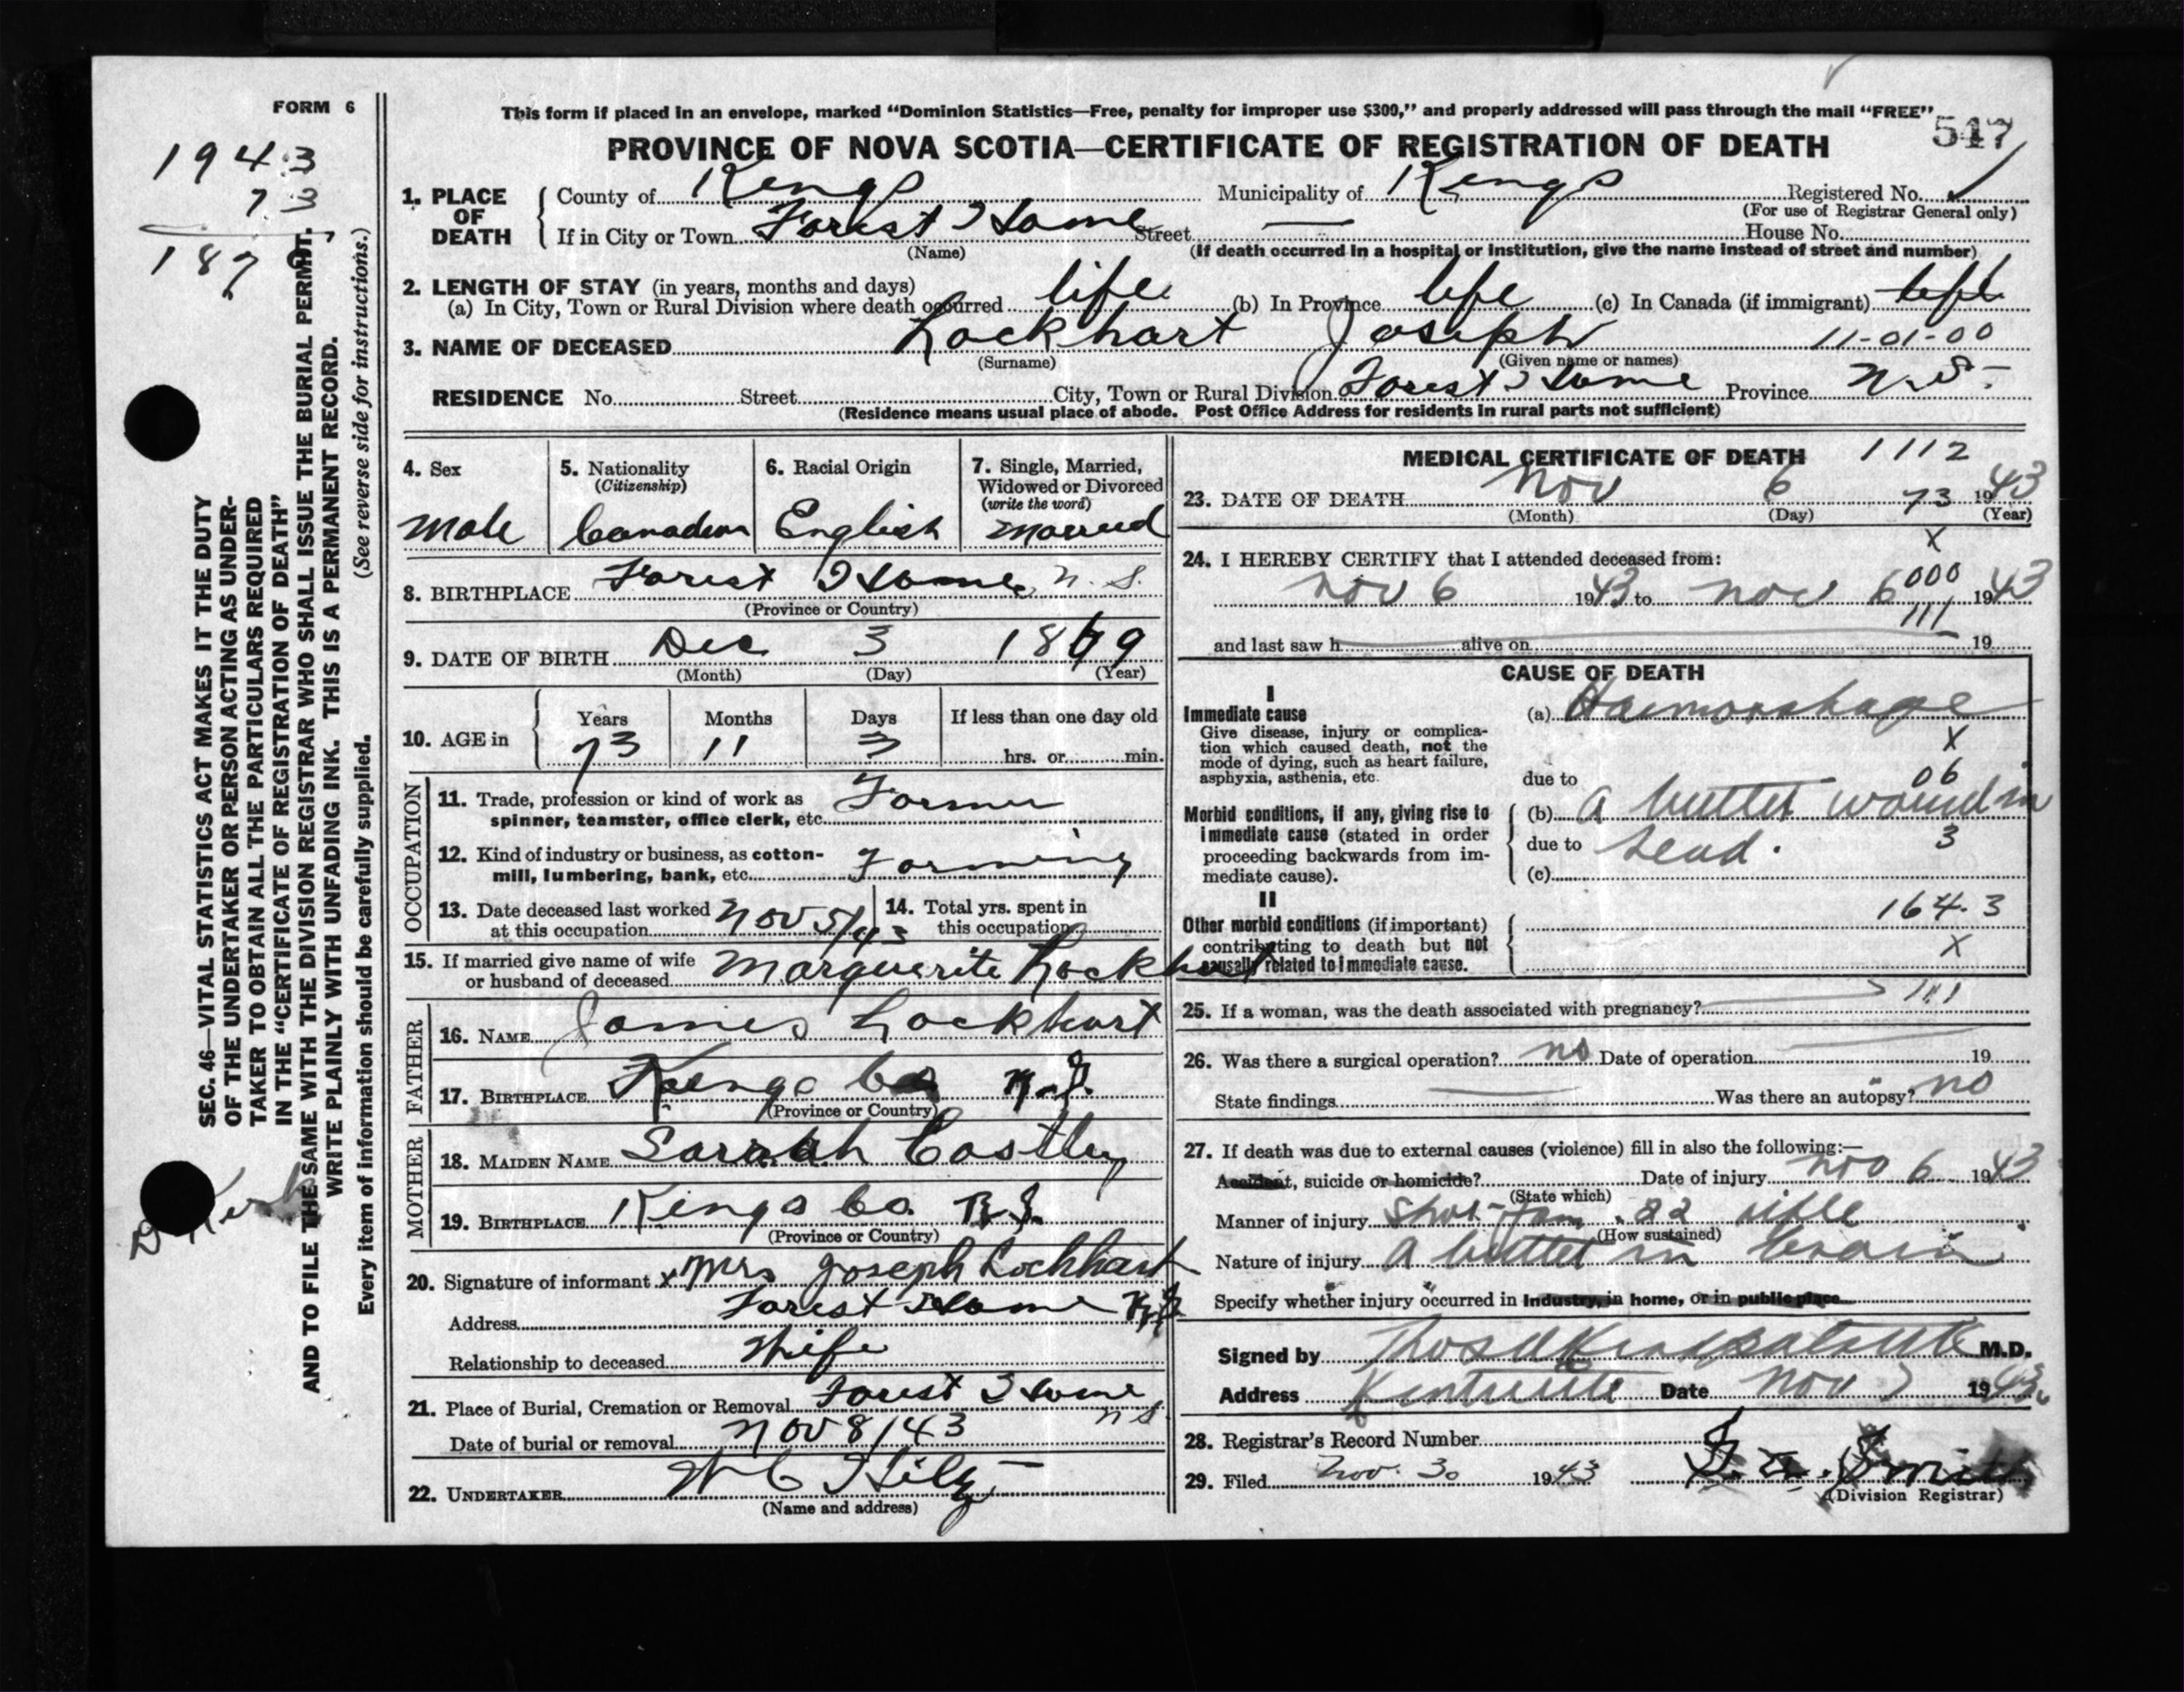 FORM 6
This form if placed in an envelope, marked “Dominion Statistics—Free, penalty for improper use $300,” and properly addressed will pass through the mail “FREE”
PROVINCE OF NOVA SCOTIA—CERTIFICATE OF REGISTRATION OF DEATH
547
1943
73
187
SEC. 46—VITAL STATISTICS ACT MAKES IT THE DUTY
OF THE UNDERTAKER OR PERSON ACTING AS UNDER-
TAKER TO OBTAIN ALL THE PARTICULARS REQUIRED
IN THE “CERTIFICATE OF REGISTRATION OF DEATH”
AND TO FILE THE SAME WITH THE DIVISION REGISTRAR WHO SHALL ISSUE THE BURIAL PERMIT.
WRITE PLAINLY WITH UNFADING INK. THIS IS A PERMANENT RECORD.
Every item of information should be carefully supplied. (See reverse side for instructions.)
1. PLACE OF DEATH
County of Kings Municipality of Kings Registered No.
(For use of Registrar General only)
If in City or Town Forest Home Street — House No.
(Name) (If death occurred in a hospital or institution, give the name instead of street and number)
2. LENGTH OF STAY (in years, months and days)
(a) In City, Town or Rural Division where death occurred life (b) In Province life (c) In Canada (if immigrant) life
3. NAME OF DECEASED Lockhart Joseph 11-01-00
(Surname) (Given name or names)
RESIDENCE No. Street City, Town or Rural Division Forest Home Province N.S.
(Residence means usual place of abode. Post Office Address for residents in rural parts not sufficient)
4. Sex
Male
5. Nationality
(Citizenship)
Canadian
6. Racial Origin
English
7. Single, Married,
Widowed or Divorced
(write the word)
Married
8. BIRTHPLACE Forest Home N.S.
(Province or Country)
9. DATE OF BIRTH Dec 3 1869
(Month) (Day) (Year)
10. AGE in
Years Months Days If less than one day old
73 11 3 hrs. or min.
OCCUPATION
11. Trade, profession or kind of work as
spinner, teamster, office clerk, etc. Farmer
12. Kind of industry or business, as cotton-
mill, lumbering, bank, etc. Farming
13. Date deceased last worked
at this occupation Nov 5/43
14. Total yrs. spent in
this occupation
15. If married give name of wife
or husband of deceased Marguerite Lockhart
FATHER
16. NAME James Lockhart
17. BIRTHPLACE Kings Co N.S.
(Province or Country)
MOTHER
18. MAIDEN NAME Sarah Costley
19. BIRTHPLACE Kings Co. N.S.
(Province or Country)
20. Signature of informant x Mrs Joseph Lockhart
Address Forest Home N.S.
Relationship to deceased Wife
21. Place of Burial, Cremation or Removal Forest Home
N.S.
Date of burial or removal Nov 8/43
22. UNDERTAKER W C Hiltz
(Name and address)
MEDICAL CERTIFICATE OF DEATH 1112
23. DATE OF DEATH Nov 6 73 1943
(Month) (Day) (Year)
X
24. I HEREBY CERTIFY that I attended deceased from:
000
Nov 6 1943 to Nov 6 1943
111
and last saw h alive on 19
CAUSE OF DEATH
I
Immediate cause
Give disease, injury or complica-
tion which caused death, not the
mode of dying, such as heart failure,
asphyxia, asthenia, etc.
(a) Haemorrhage
X
06
due to
Morbid conditions, if any, giving rise to
immediate cause (stated in order
proceeding backwards from im-
mediate cause).
(b) A bullet wound in
due to head. 3
(c)
II
Other morbid conditions (if important)
contributing to death but not
causally related to immediate cause.
164.3
X
25. If a woman, was the death associated with pregnancy? 111
26. Was there a surgical operation? no Date of operation 19
State findings Was there an autopsy? no
27. If death was due to external causes (violence) fill in also the following:—
Accident, suicide or homicide? Date of injury Nov 6 1943
(State which)
Manner of injury Shot from .22 rifle
(How sustained)
Nature of injury A bullet in brain
Specify whether injury occurred in Industry, in home, or in public place
Signed by M.D.
Address Kentville Date Nov 7 1943
28. Registrar's Record Number
29. Filed Nov. 30 1943 Smith
(Division Registrar)